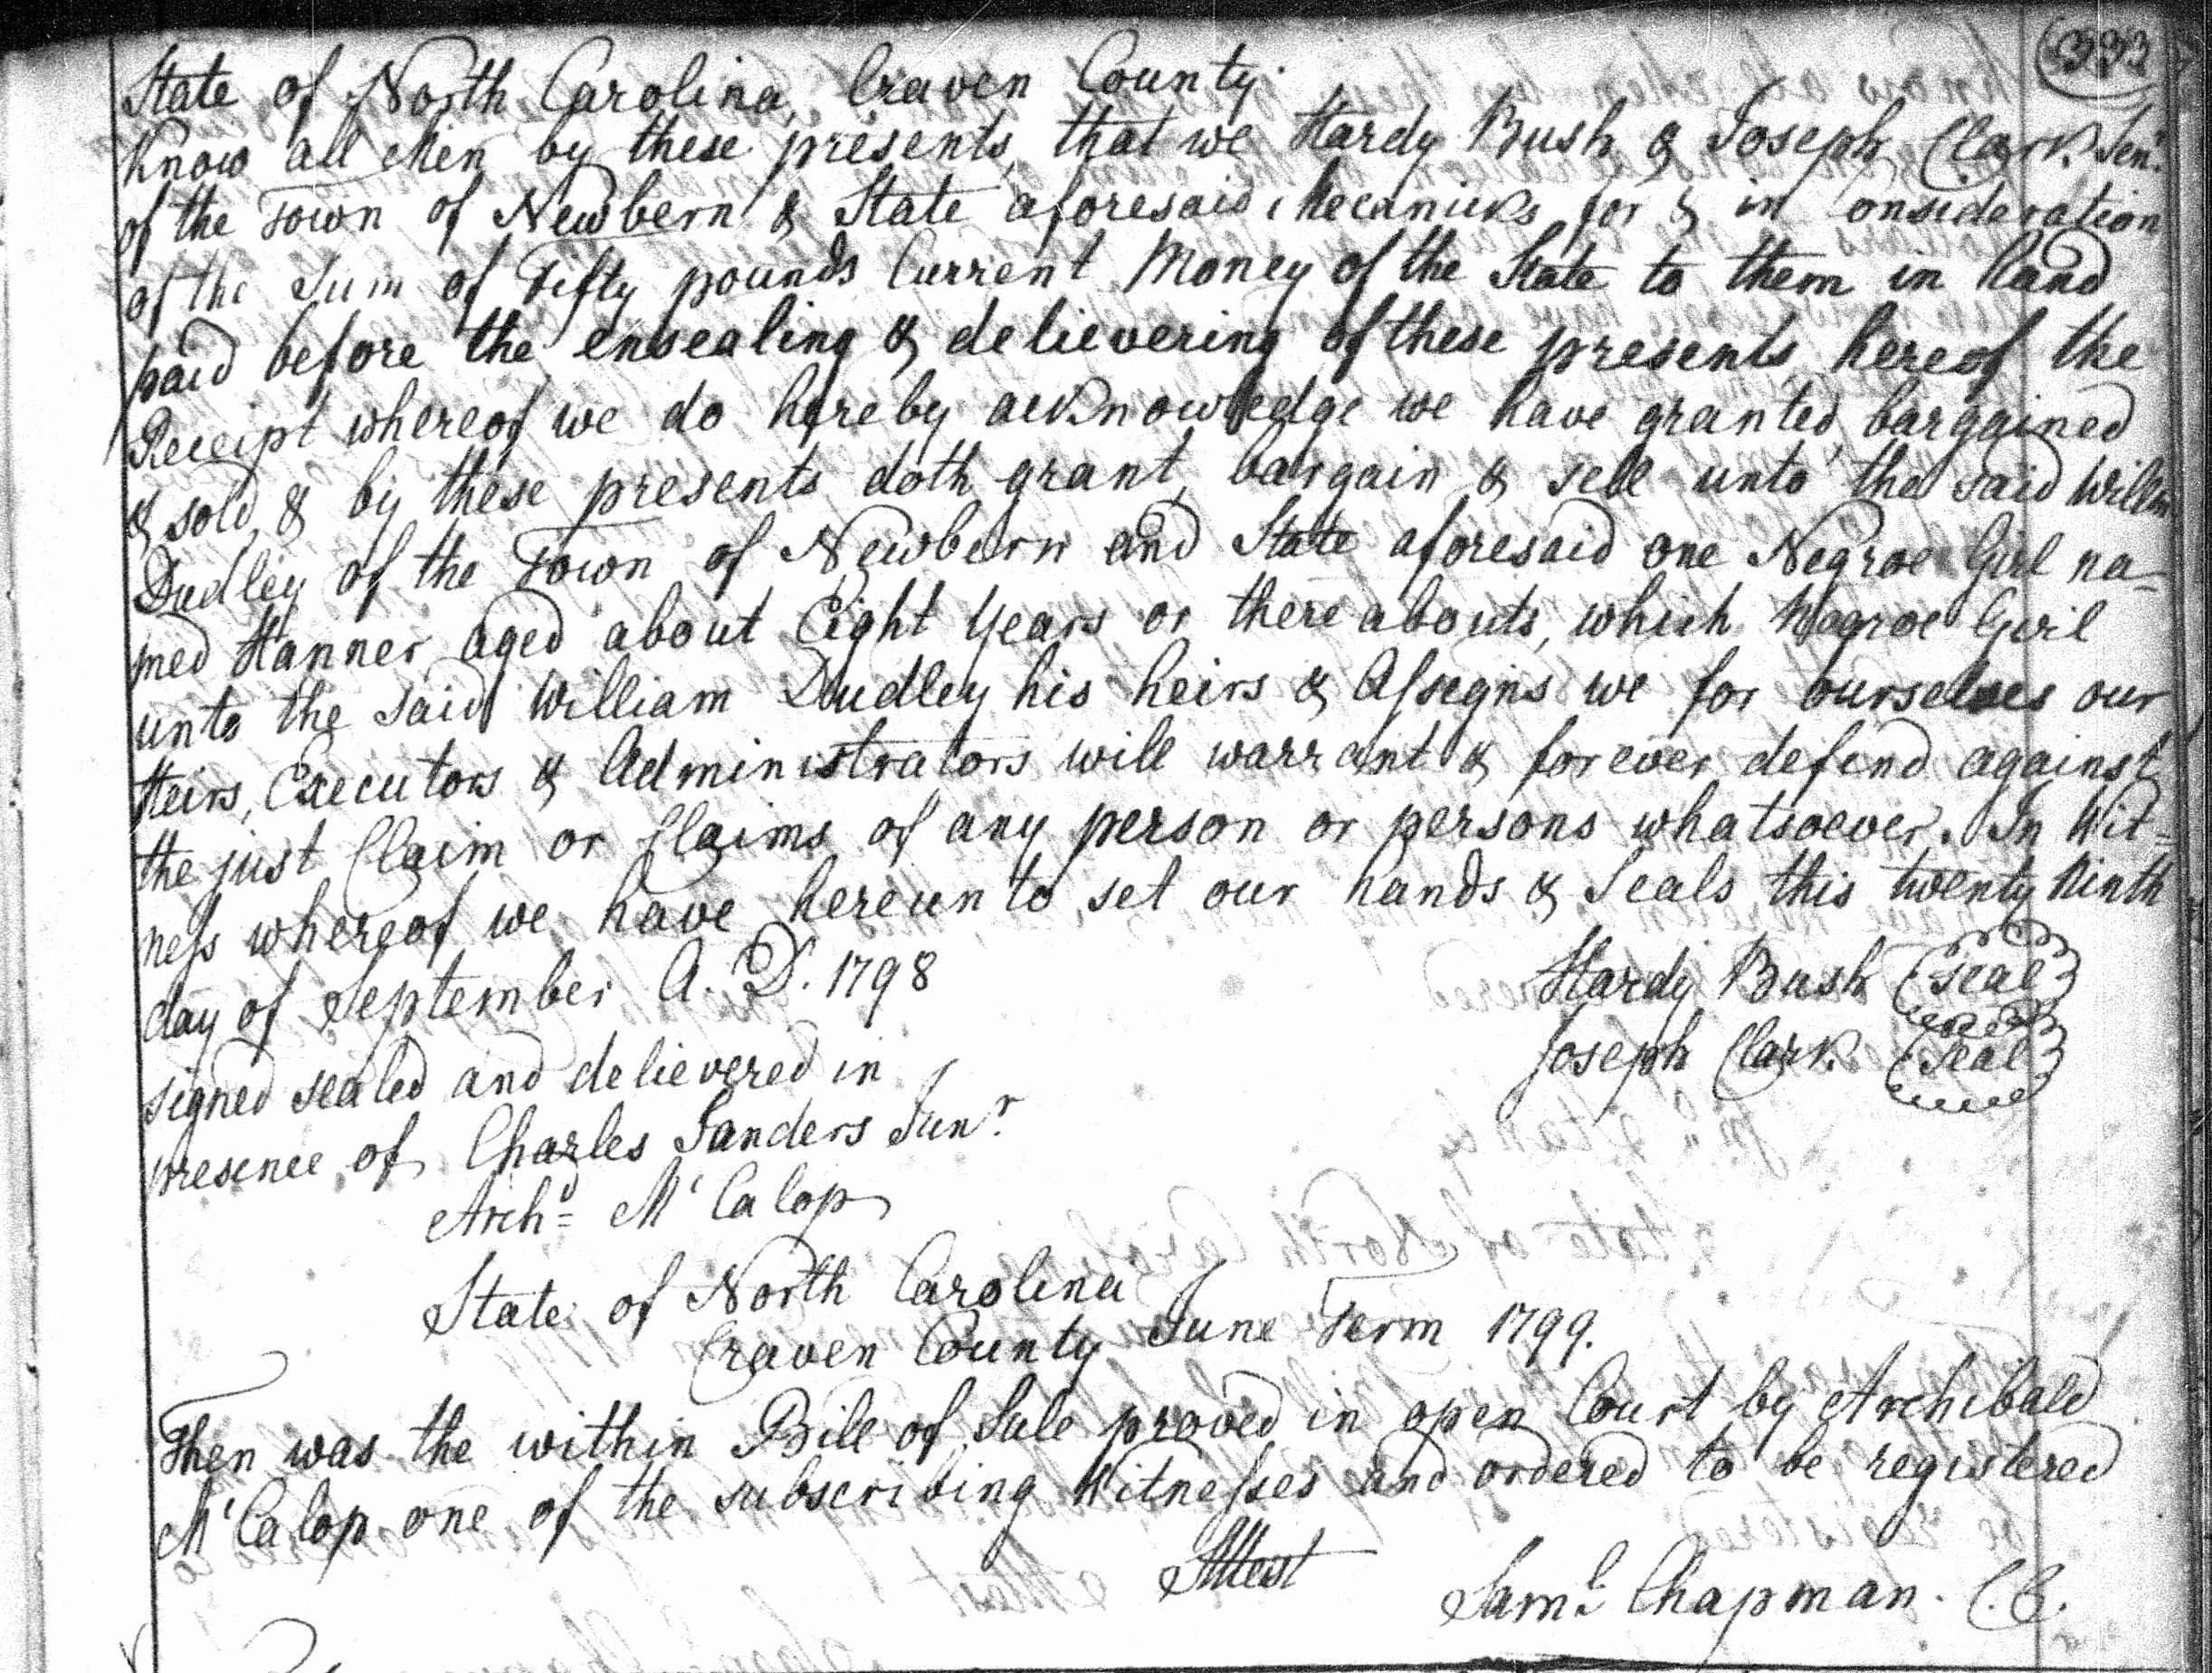 333
State of North Carolina, Craven County.
Know all Men by these presents, that we Hardy Bush & Joseph Clark Senr.
of the Town of Newbern & State aforesaid Mecanicks for & in Consideration
of the Sum of Fifty pounds Current Money of the State to them in hand
paid before the ensealing & delievering of these presents, hereof the
Receipt whereof we do hereby acknowledge we have granted, bargained
& sold, & by these presents doth grant, bargain & sell unto the said Willm
Dudley of the Town of Newbern and State aforesaid one Negroe Girl na-
med Hanner aged about Eight Years or thereabouts, which Negroe Girl
unto the said William Dudley his heirs & Assegns we for ourselves our
Heirs, Executors & Administrators will warrant & forever defend against
the just Claim or Claims of any person or persons whatsoever. In Wit=
ness whereof we have hereunto set our hands & Seals this twenty Ninth
day of September A. D. 1798
Hardy Bush (Seal)
Joseph Clark. (Seal)
signed sealed and delievered in
presence of Charles Sanders Junr.
Archd= McCalop
State of North Carolina
Craven County June Term 1799.
Then was the within Bill of Sale proved in open Court by Archibald
McCalop one of the subscribing Witnesses and ordered to be registered
Attest
Saml. Chapman. C.C.